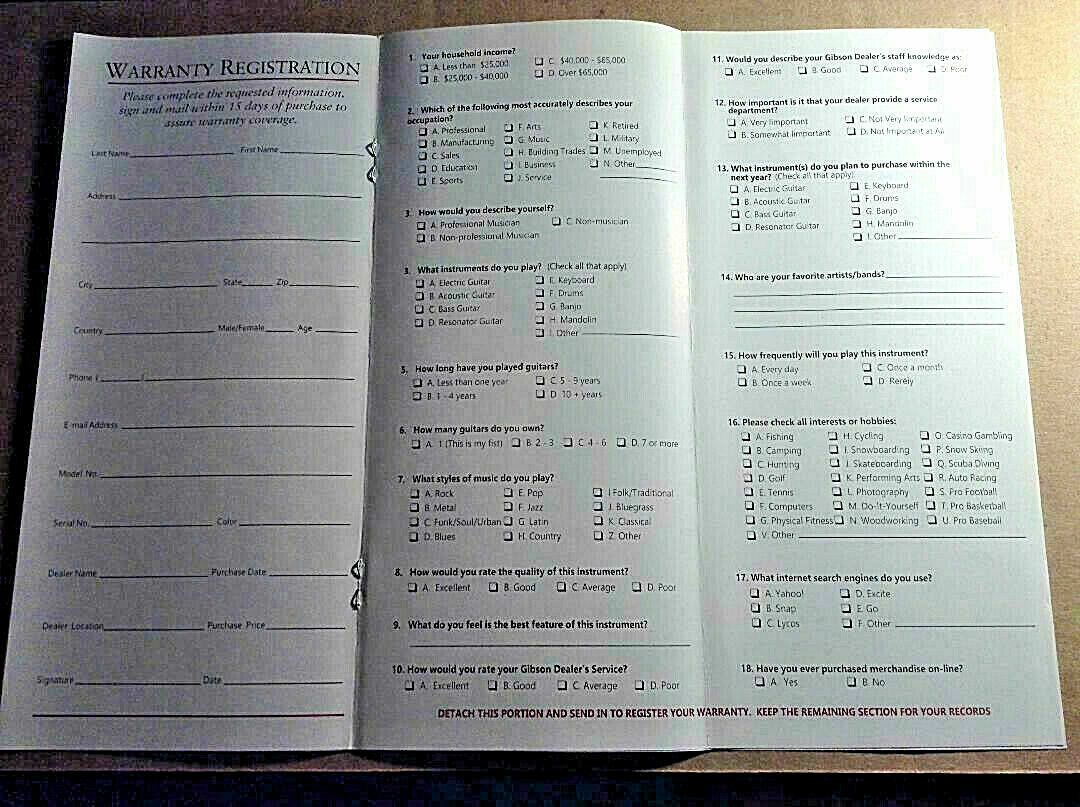 WARRANTY REGISTRATION
Please complete the requested information,
sign and mail within 15 days of purchase to
assure warranty coverage.
Last Name First Name
Address
City State Zip
Country Male/Female Age
Phone ( )
E-mail Address
Model No.
Serial No. Color
Dealer Name Purchase Date
Dealer Location Purchase Price
Signature Date
1. Your household income?
A. Less than $25,000 C. $40,000 - $65,000
B. $25,000 - $40,000 D. Over $65,000
2. Which of the following most accurately describes your
occupation?
A. Professional F. Arts K. Retired
B. Manufacturing G. Music L. Military
C. Sales H. Building Trades M. Unemployed
D. Education I. Business N. Other
E. Sports J. Service
3. How would you describe yourself?
A. Professional Musician C. Non-musician
B. Non-professional Musician
3. What instruments do you play? (Check all that apply)
A. Electric Guitar E. Keyboard
B. Acoustic Guitar F. Drums
C. Bass Guitar G. Banjo
D. Resonator Guitar H. Mandolin
I. Other
5. How long have you played guitars?
A. Less than one year C. 5 - 9 years
B. 1 - 4 years D. 10 + years
6. How many guitars do you own?
A. 1 (This is my fist) B. 2 - 3 C. 4 - 6 D. 7 or more
7. What styles of music do you play?
A. Rock E. Pop I Folk/Traditional
B. Metal F. Jazz J. Bluegrass
C. Funk/Soul/Urban G. Latin K. Classical
D. Blues H. Country Z. Other
8. How would you rate the quality of this instrument?
A. Excellent B. Good C. Average D. Poor
9. What do you feel is the best feature of this instrument?
10. How would you rate your Gibson Dealer's Service?
A. Excellent B. Good C. Average D. Poor
11. Would you describe your Gibson Dealer's staff knowledge as:
A. Excellent B. Good C. Average D. Poor
12. How important is it that your dealer provide a service
department?
A. Very Important C. Not Very Important
B. Somewhat Important D. Not Important at All
13. What instrument(s) do you plan to purchase within the
next year? (Check all that apply)
A. Electric Guitar E. Keyboard
B. Acoustic Guitar F. Drums
C. Bass Guitar G. Banjo
D. Resonator Guitar H. Mandolin
I. Other
14. Who are your favorite artists/bands?
15. How frequently will you play this instrument?
A. Every day C. Once a month
B. Once a week D. Rerely
16. Please check all interests or hobbies:
A. Fishing H. Cycling O. Casino Gambling
B. Camping I. Snowboarding P. Snow Skiing
C. Hunting J. Skateboarding Q. Scuba Diving
D. Golf K. Performing Arts R. Auto Racing
E. Tennis L. Photography S. Pro Football
F. Computers M. Do-It-Yourself T. Pro Basketball
G. Physical Fitness N. Woodworking U. Pro Baseball
V. Other
17. What internet search engines do you use?
A. Yahoo! D. Excite
B. Snap E. Go
C. Lycos F. Other
18. Have you ever purchased merchandise on-line?
A. Yes B. No
DETACH THIS PORTION AND SEND IN TO REGISTER YOUR WARRANTY. KEEP THE REMAINING SECTION FOR YOUR RECORDS